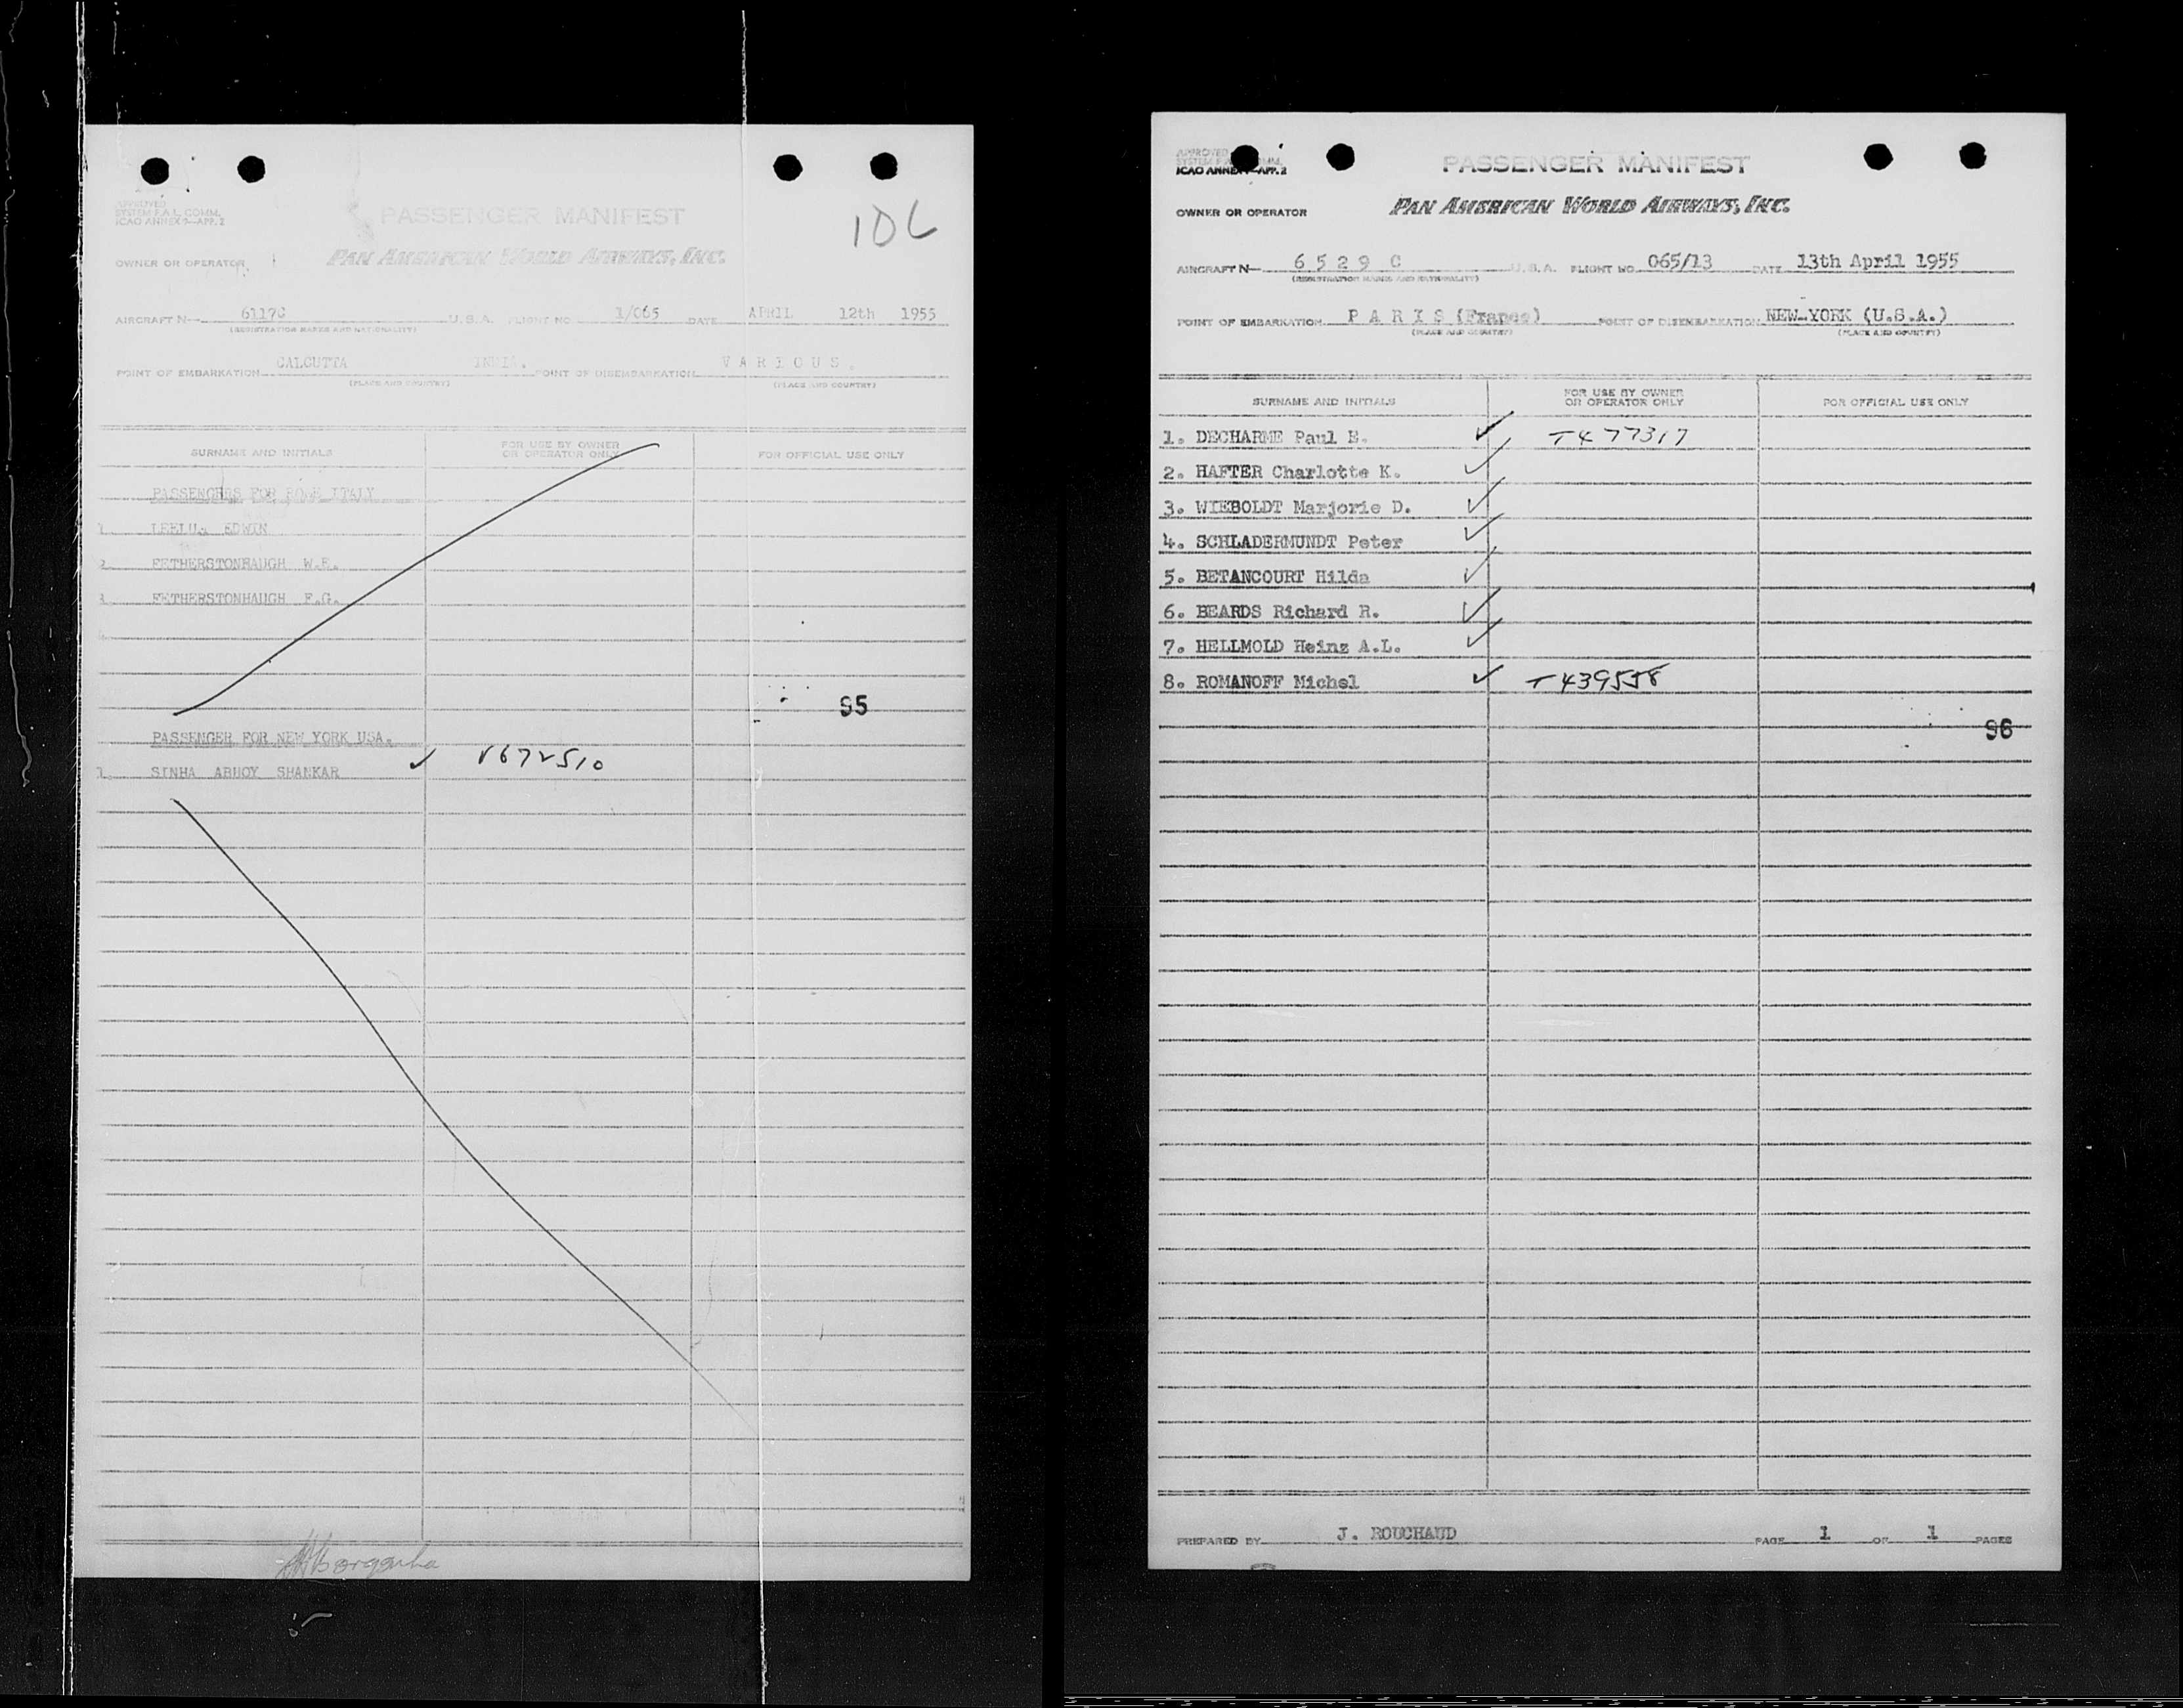 APPROVED
SYSTEM F.A.L. COMM.
ICAO ANNEX 9—APP. 2
PASSENGER MANIFEST
10C
OWNER OR OPERATOR
PAN AMERICAN WORLD AIRWAYS, INC.
AIRCRAFT N— 6117C U.S.A. FLIGHT NO. 1/065 DATE APRIL 12th 1955
(REGISTRATION MARKS AND NATIONALITY)
POINT OF EMBARKATION CALCUTTA INDIA. POINT OF DISEMBARKATION V A R I O U S.
(PLACE AND COUNTRY) (PLACE AND COUNTRY)
SURNAME AND INITIALS FOR USE BY OWNER OR OPERATOR ONLY FOR OFFICIAL USE ONLY
PASSENGRES FOR ROME ITALY
1. EDWIN
2. FETHERSTONHAUGH W.E.
3. FETHERSTONHAUGH F.G.
4.
95
PASSENGER FOR NEW YORK USA.
1. SINHA ABHOY SHANKAR ✓ V672510
APPROVED
SYSTEM F.A.L. COMM.
ICAO ANNEX 9—APP. 2
PASSENGER MANIFEST
OWNER OR OPERATOR
PAN AMERICAN WORLD AIRWAYS, INC.
AIRCRAFT N— 6 5 2 9 C U.S.A. FLIGHT NO. 065/13 DATE 13th April 1955
(REGISTRATION MARKS AND NATIONALITY)
POINT OF EMBARKATION P A R I S (France) POINT OF DISEMBARKATION NEW YORK (U.S.A.)
(PLACE AND COUNTRY) (PLACE AND COUNTRY)
SURNAME AND INITIALS FOR USE BY OWNER OR OPERATOR ONLY FOR OFFICIAL USE ONLY
1. DECHARME Paul E. ✓ T477317
2. HAFTER Charlotte K. ✓
3. WIEBOLDT Marjorie D. ✓
4. SCHLADERMUNDT Peter ✓
5. BETANCOURT Hilda ✓
6. BEARDS Richard R. ✓
7. HELLMOLD Heinz A.L. ✓
8. ROMANOFF Michel ✓ T439558
96
PREPARED BY J. ROUCHAUD PAGE 1 OF 1 PAGES